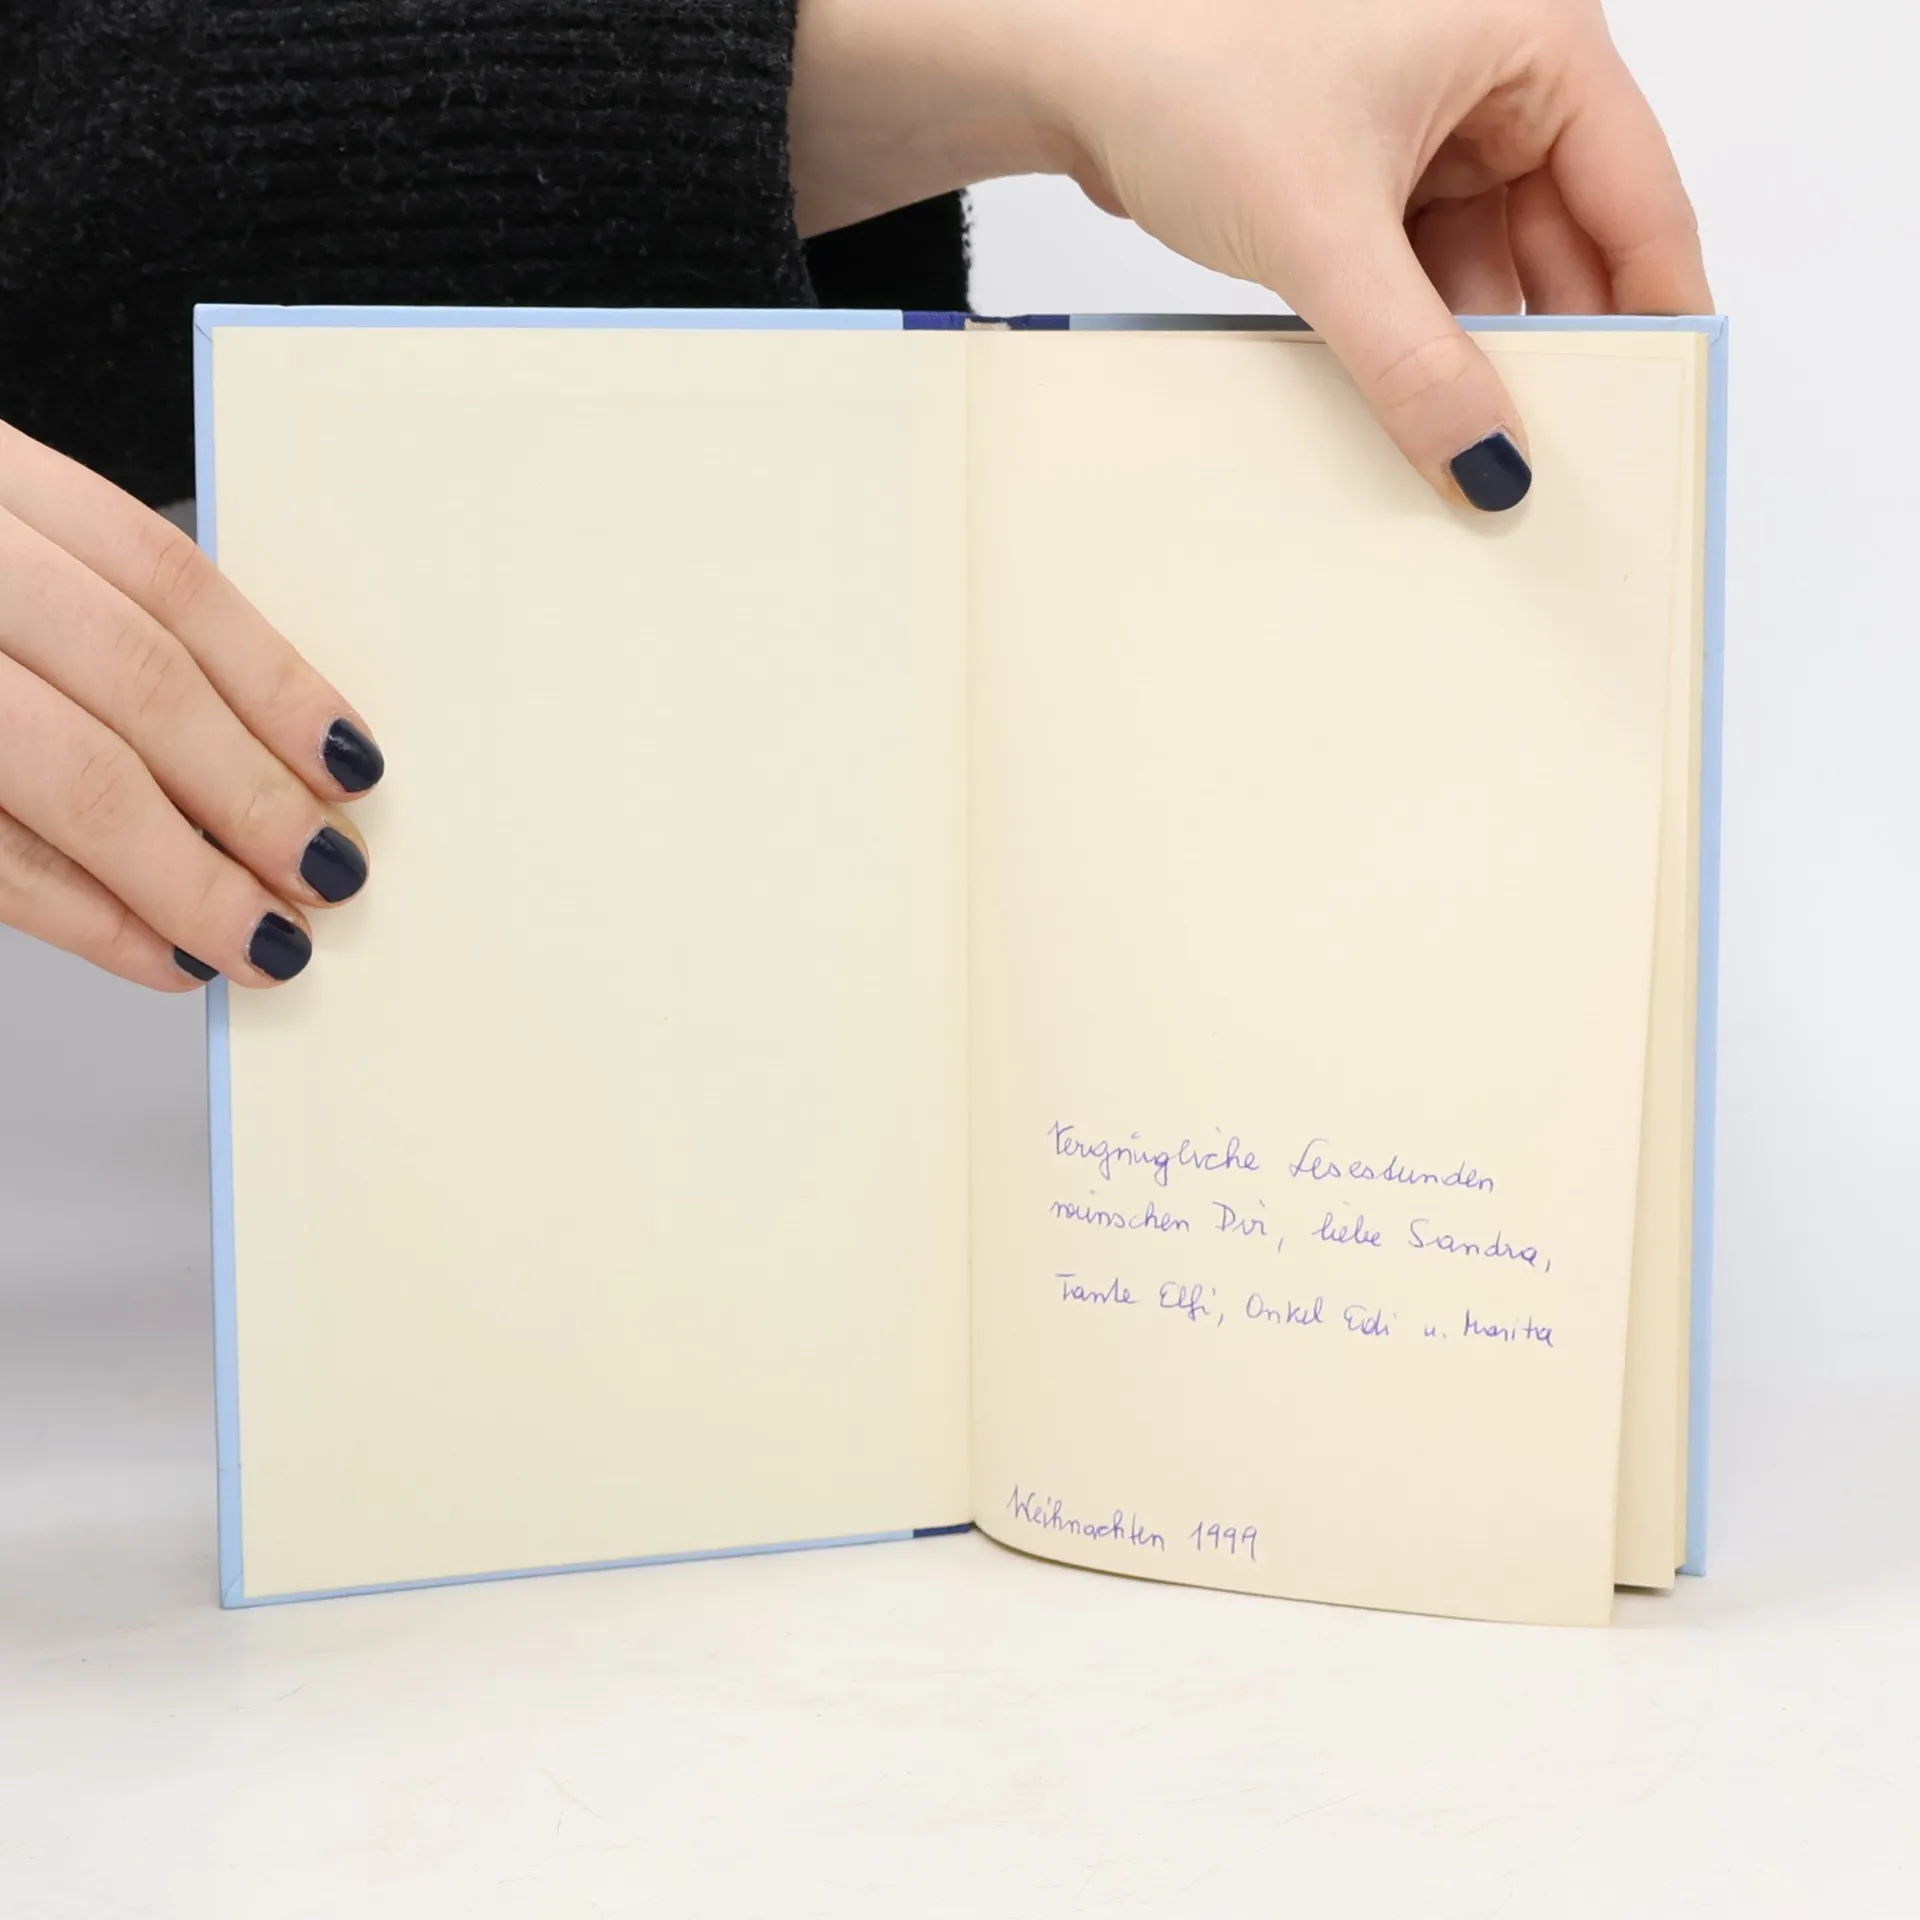 Vergnügliche Lesestunden
wünschen Dir, liebe Sandra,
Tante Elfi, Onkel Edi u. Marita
Weihnachten 1999